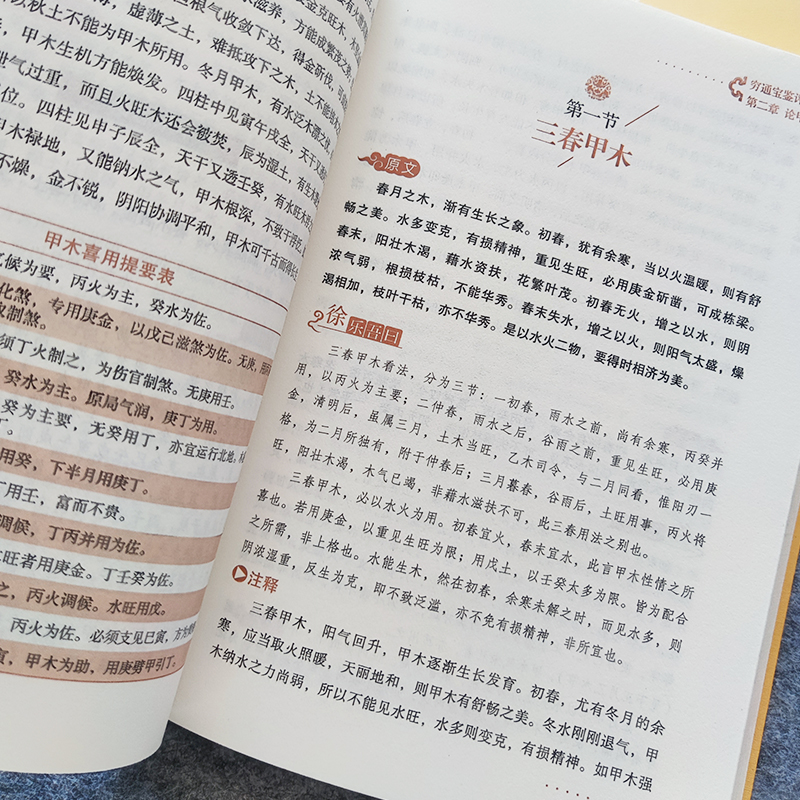 根气收敛下达，得金斫伐，可
以秋土不能为甲木所用。冬月甲木，有水泛木漂之
甲木生机方能焕发。
泄气过重，而且火旺木还会被焚，辰为湿土，有生
位。四柱见申子辰全，天干又透壬癸，有水旺木
木禄地，又能纳水之气，甲木根深，不致于漂泛
不燥，金不锐，阴阳协调平和，甲木可千古而得长
甲木喜用提要表
气候为要，丙火为主，癸水为佐。
化煞，专用庚金，以戊己滋煞为佐。无庚，用
取制煞。
须丁火制之，为伤官制煞。无庚用壬。
癸水为主。原局气润，庚丁为用。
癸为主要，无癸用丁，亦宜运行北地。
丁。
用癸，下半月用庚丁。
丁用壬，富而不贵。
调候，丁丙并用为佐。
旺者用庚金。丁壬癸为佐。
之，丙火调候。水旺用戊。
丙火为佐。必须支见巳寅，方为
寅，甲木为助，用庚劈甲引丁。
穷通宝鉴评
第二章 论甲
第一节
三春甲木
原文
春月之木，渐有生长之象。初春，犹有余寒，当以火温暖，则有舒
畅之美。水多变克，有损精神，重见生旺，必用庚金斫凿，可成栋梁。
春末，阳壮木渴，藉水资扶，花繁叶茂。初春无火，增之以水，则阴
浓气弱，根损枝枯，不能华秀。春末失水，增之以火，则阳气太盛，燥
渴相加，枝叶干枯，亦不华秀。是以水火二物，要得时相济为美。
徐乐吾曰
三春甲木看法，分为三节：一初春，雨水之前，尚有余寒，丙癸并
用，以丙火为主要；二仲春，雨水之后，谷雨之前，重见生旺，必用庚
金，清明后，虽属三月，土木当旺，乙木司令，与二月同看，惟阳刃一
格，为二月所独有，附于仲春后；三月暮春，谷雨后，土旺用事，丙火将
旺，阳壮木渴，木气已竭，非藉水滋扶不可，此三春用法之别也。
三春甲木，必以水火为用。初春宜火，春末宜水，此言甲木性情之所
喜也。若用庚金，以重见生旺为限；用戊土，以壬癸太多为限。皆为配合
之所需，非上格也。水能生木，然在初春，余寒未解之时，而见水多，则
阴浓湿重，反生为克，即不致泛滥，亦不免有损精神，非所宜也。
注释
三春甲木，阳气回升，甲木逐渐生长发育。初春，尤有冬月的余
寒，应当取火照暖，天丽地和，则甲木有舒畅之美。冬水刚刚退气，甲
木纳水之力尚弱，所以不能见水旺，水多则变克，有损精神。如甲木强